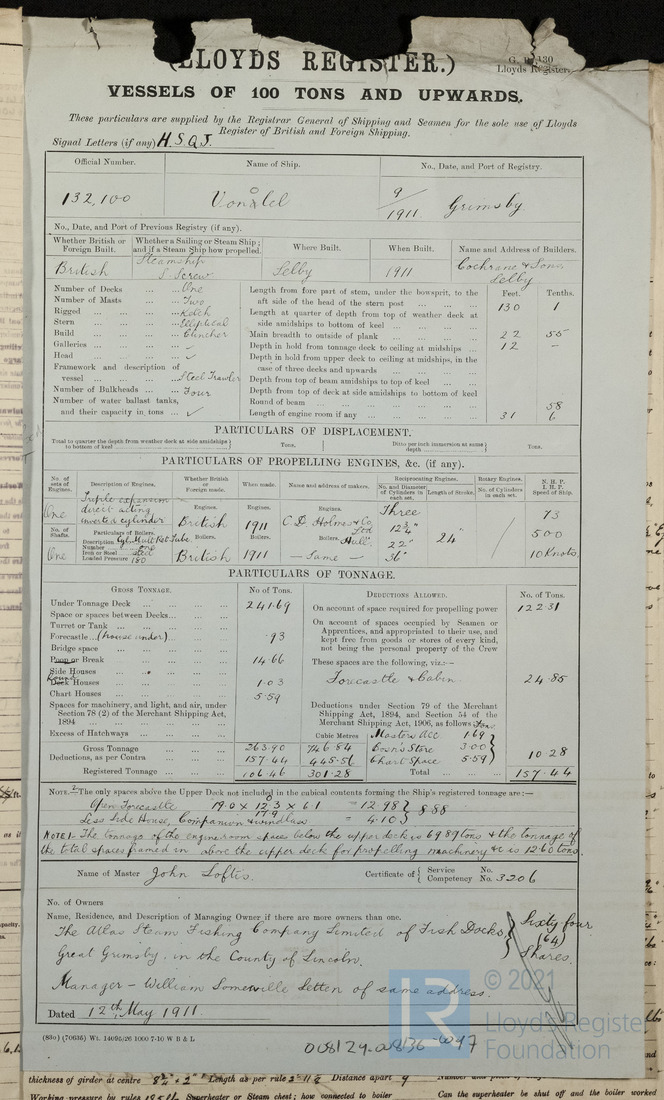 (LLOYDS REGISTER.)
Lloyds Register
VESSELS OF 100 TONS AND UPWARDS.
These particulars are supplied by the Registrar General of Shipping and Seamen for the sole use of Lloyds
Register of British and Foreign Shipping.
Signal Letters (if any) H.S.Q.J.
Official Number. Name of Ship. No., Date, and Port of Registry.
132,100 9/1911 Grimsby
No., Date, and Port of Previous Registry (if any).
Whether British or Foreign Built. Whether a Sailing or Steam Ship; and if a Steam Ship how propelled. Where Built. When Built. Name and Address of Builders.
British Steamship S. Screw Selby 1911 Cochrane & Sons, Selby
Number of Decks ... One
Number of Masts ... Two
Rigged ... Ketch
Stern ... Elliptical
Build ... Clincher
Galleries ... ✓
Head ... ✓
Framework and description of
vessel ... Steel Trawler
Number of Bulkheads ... Four
Number of water ballast tanks,
and their capacity in tons ... ✓
Feet. Tenths.
Length from fore part of stem, under the bowsprit, to the
aft side of the head of the stern post ... 130 1
Length at quarter of depth from top of weather deck at
side amidships to bottom of keel ...
Main breadth to outside of plank ... 22 55
Depth in hold from tonnage deck to ceiling at midships ... 12 –
Depth in hold from upper deck to ceiling at midships, in the
case of three decks and upwards ...
Depth from top of beam amidships to top of keel ...
Depth from top of deck at side amidships to bottom of keel
Round of beam ... 58
Length of engine room if any ... 31 6
PARTICULARS OF DISPLACEMENT.
Total to quarter the depth from weather deck at side amidships to bottom of keel Tons. Ditto per inch immersion at same depth Tons.
PARTICULARS OF PROPELLING ENGINES, &c. (if any).
No. of sets of Engines. Description of Engines. Whether British or Foreign made. When made. Name and address of makers. Reciprocating Engines. Rotary Engines. N.H.P. I.H.P. Speed of Ship.
No. and Diameter of Cylinders in each set. Length of Stroke. No. of Cylinders in each set.
One Triple expansion direct acting inverted cylinder Engines. British Engines. 1911 Engines. C. D. Holmes & Co Ltd Hull Three 12¾" 22" 36" 24" 73 500 10 Knots
No. of Shafts. One
Particulars of Boilers.
Number one
Iron or Steel Steel
Loaded Pressure 180
Boilers. British Boilers. 1911 Boilers. – Same –
PARTICULARS OF TONNAGE.
GROSS TONNAGE. No of Tons.
Under Tonnage Deck ... 241.69
Space or spaces between Decks ...
Turret or Tank ...
Forecastle ... (house under) ... .93
Bridge space ...
Poop or Break ... 14.66
Side Houses ...
Round Deck Houses ... 1.03
Chart Houses ... 5.59
Spaces for machinery, and light, and air, under
Section 78 (2) of the Merchant Shipping Act,
1894 ...
Excess of Hatchways ... Cubic Metres
Gross Tonnage ... 263.90 746.84
Deductions, as per Contra ... 157.44 445.56
Registered Tonnage ... 106.46 301.28
DEDUCTIONS ALLOWED. No. of Tons.
On account of space required for propelling power 122.31
On account of spaces occupied by Seamen or
Apprentices, and appropriated to their use, and
kept free from goods or stores of every kind,
not being the personal property of the Crew
These spaces are the following, viz.:—
Forecastle & Cabin 24.85
Deductions under Section 79 of the Merchant
Shipping Act, 1894, and Section 54 of the
Merchant Shipping Act, 1906, as follows Tons
Masters Acc 1.69
Bosn's Store 3.00
Chart Space 5.59
10.28
Total ... 157.44
NOTE.—The only spaces above the Upper Deck not included in the cubical contents forming the Ship's registered tonnage are:—
Open Forecastle = 12.98
Less Side House, Companion & windlass = 4.10 } 8.88
NOTE 1. The tonnage of the engine room spaces below the upper deck is 69.89 tons & the tonnage of
the total spaces framed in above the upper deck for propelling machinery &c is 12.60 tons.
Name of Master John Loftis. Certificate of { Service No. Competency No. 3206
No. of Owners
Name, Residence, and Description of Managing Owner if there are more owners than one.
The Atlas Steam Fishing Company Limited of Fish Docks, Sixty four
Great Grimsby, in the County of Lincoln. (64) Shares.
Manager – William Somerville Letten of same address.
Dated 12th May 1911.
(83o) (70635) Wt. 14095/26 1000 7-10 W B & L
© 2021
Lloyd's Register
Foundation
thickness of girder at centre Length as per rule Distance apart 9
Working pressure by rules Superheater or Steam chest; how connected to boiler Can the superheater be shut off and the boiler worked